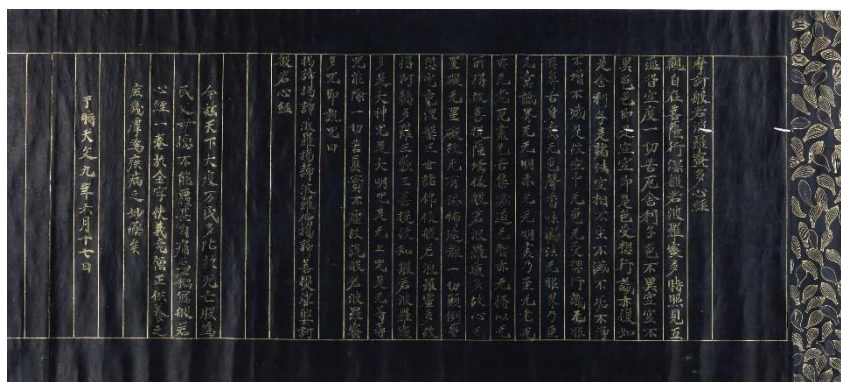 摩訶般若波羅蜜多心經
觀自在菩薩行深般若波羅蜜多時照見五
蘊皆空度一切苦厄舍利子色不異空空不
異色色即是空空即是色受想行識亦復如
是舍利子是諸法空相不生不滅不垢不淨
不增不減是故空中无色无受想行識无眼
耳鼻舌身意无色聲香味觸法无眼界乃至
无意識界无无明亦无无明盡乃至无老死
亦无老死盡无苦集滅道无智亦无得以无
所得故菩提薩埵依般若波羅蜜多故心无
罣礙无罣礙故无有恐怖遠離一切顛倒夢
想究竟涅槃三世諸佛依般若波羅蜜多故
得阿耨多羅三藐三菩提故知般若波羅蜜
多是大神咒是大明咒是无上咒是无等等
咒能除一切苦真實不虛故說般若波羅蜜
多咒即說咒曰
揭諦揭諦波羅揭諦波羅僧揭諦菩提薩婆訶
般若心經
今茲天下大疫万民多阽於死亡朕為
民之父母德不能覆甚自痛焉竊寫般若
心經一卷於金字使義堯僧正供養之
庶幾虖為疾病之妙藥矣
于時天文九年六月十七日